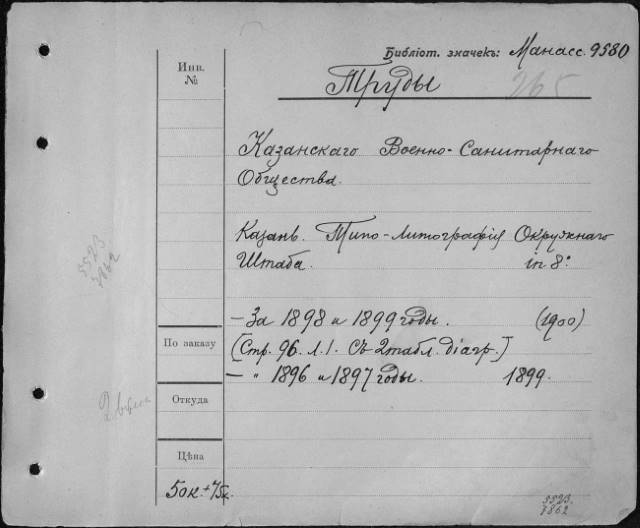 Библіот. значекъ: Манасс. 9580
Инв.
№
Труды
265
Казанскаго Военно-Санитарнаго
Общества.
Казань. Типо-литографія Окружнаго
Штаба. in 8º
— За 1898 и 1899 годы. (1900)
По заказу
[Стр. 96. л. 1. Съ 2 табл. діагр.]
— " 1896 и 1897 годы. 1899.
Откуда
Цѣна
50к + 75к.
5523
8862
5523